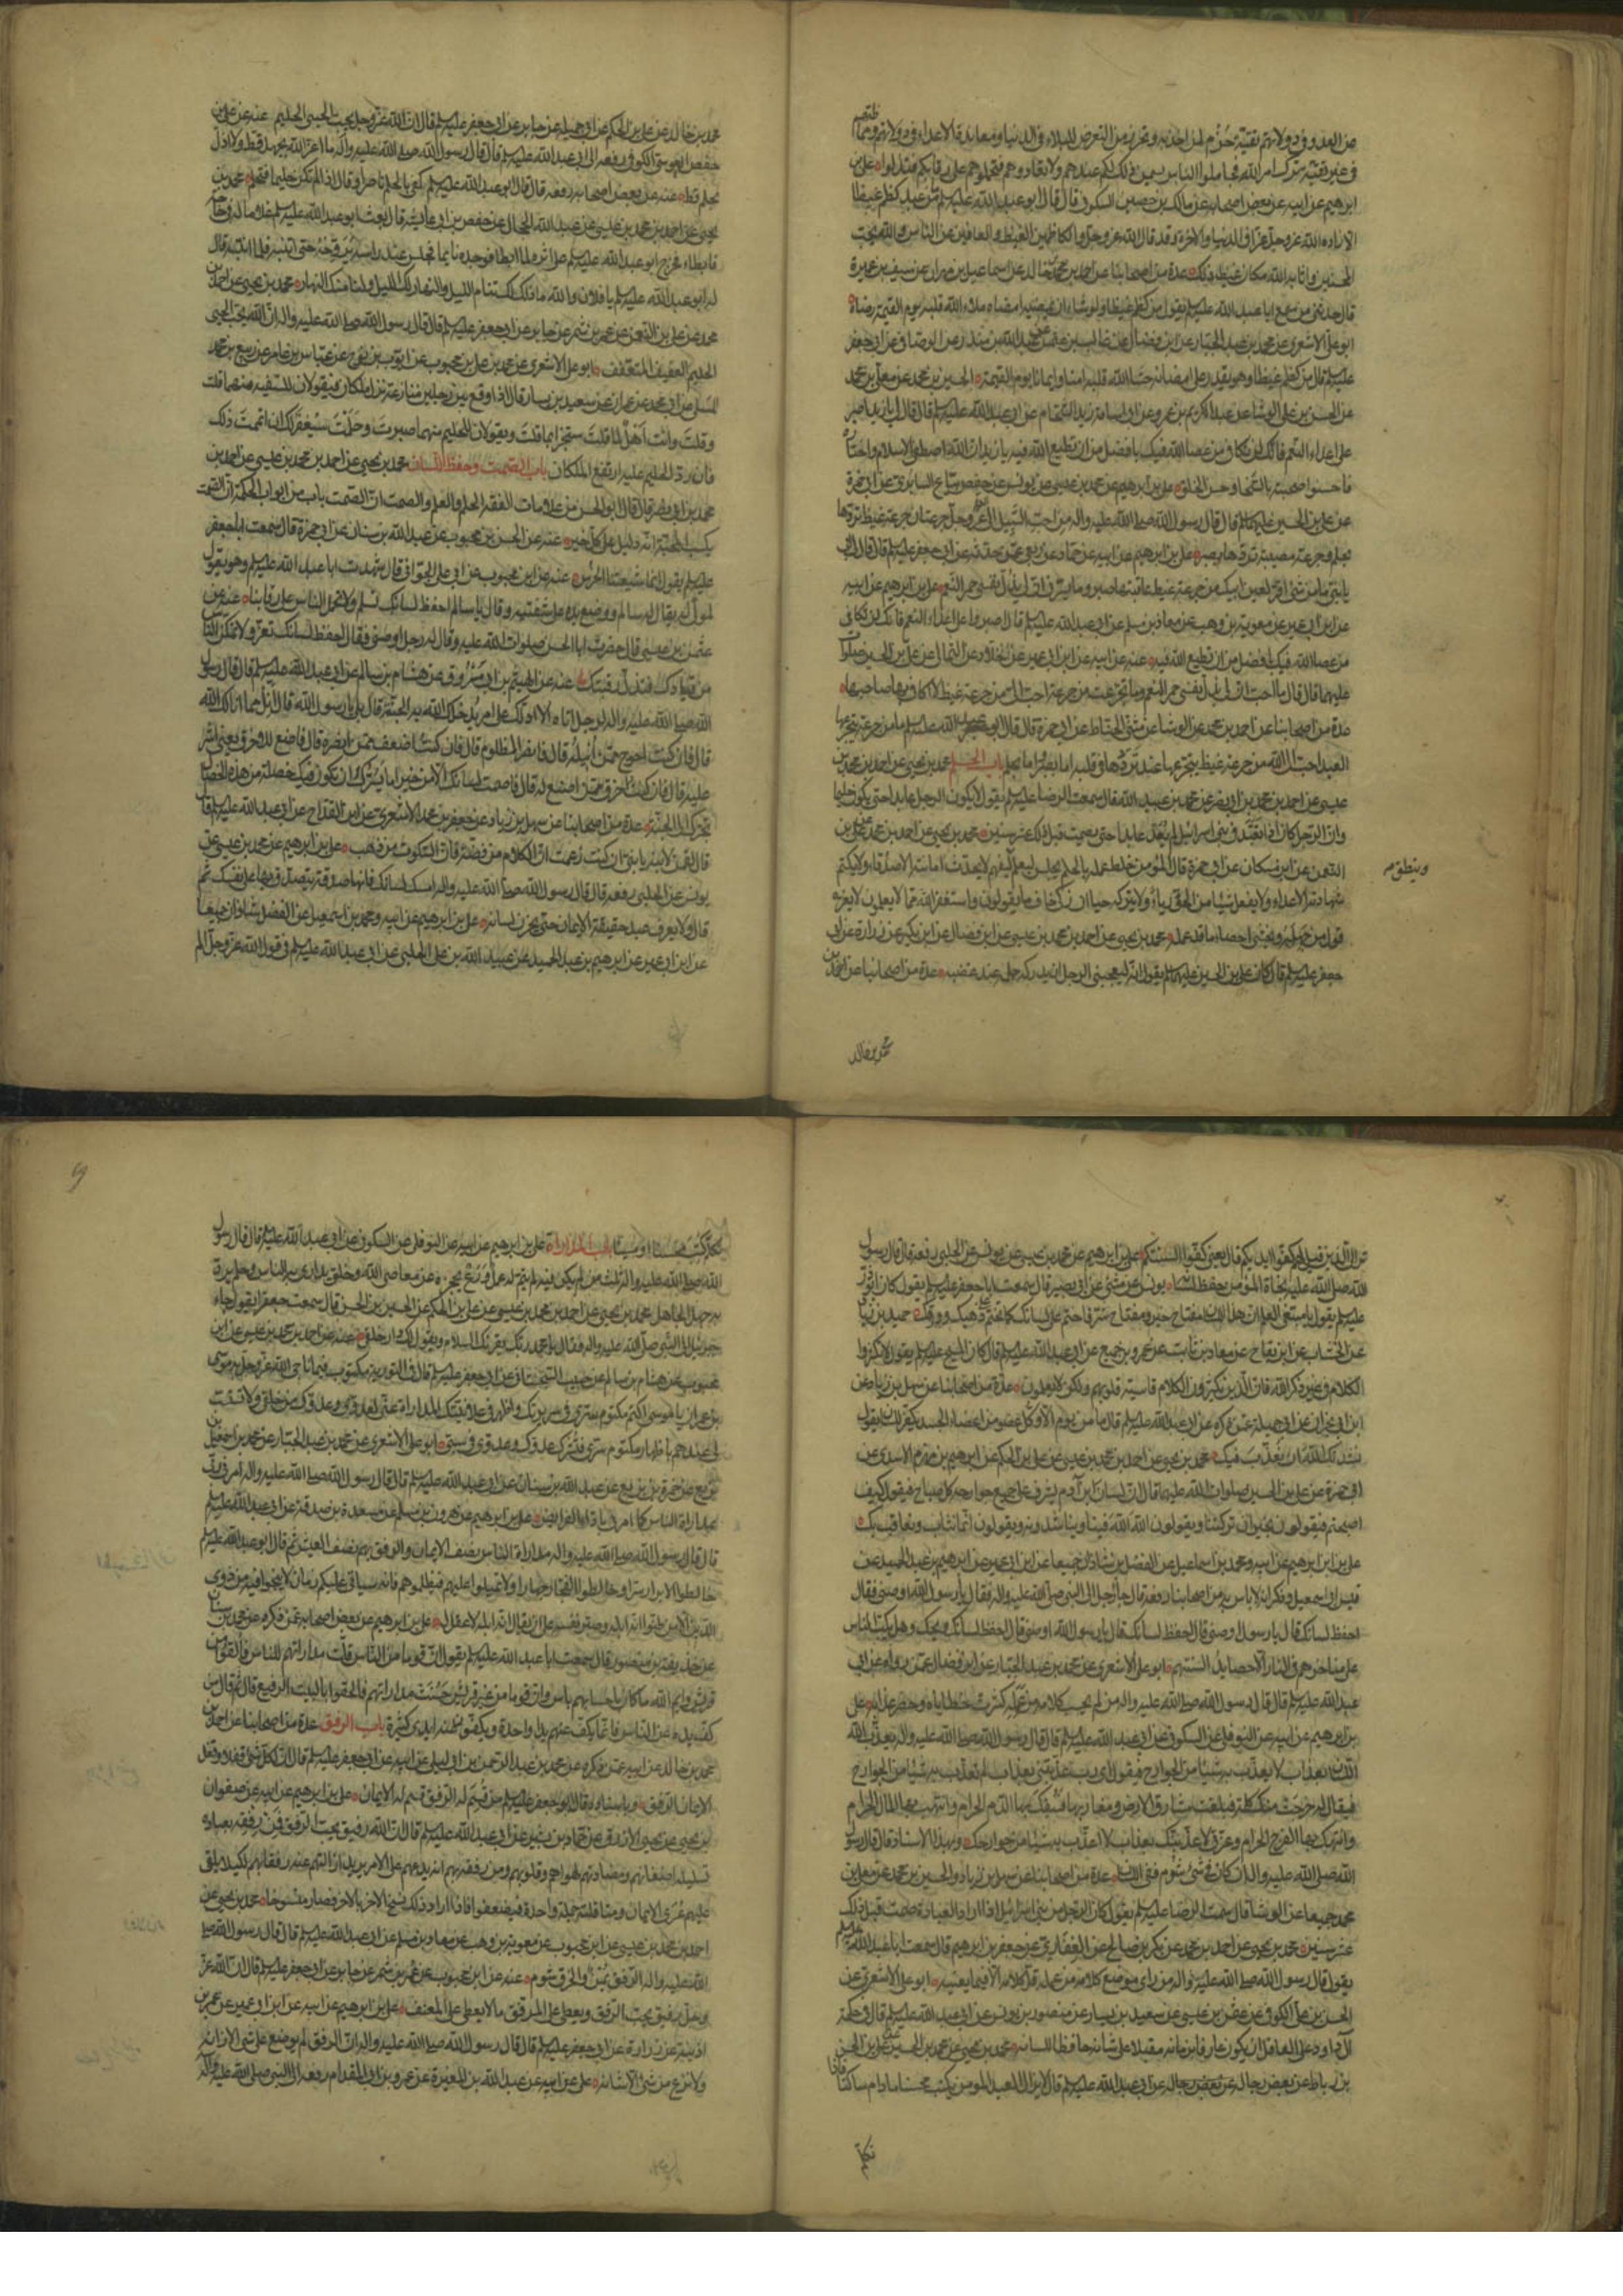 من العدو في دولاتهم تقية حزم لمن اخذ به وتحرز من التعرض للبلاء في الدنيا ومعاندة الاعداء في دولاتهم ومماظتهم
في غير تقية ترك امر الله فجاملوا الناس يسمن ذلك لكم عندهم ولا تعادوهم فتحملوهم على رقابكم فتذلوا علي بن
ابرهيم عن ابيه عن بعض اصحابه عن مالك بن حصين السكوني قال قال ابو عبد الله عليه السلم ما من عبد كظم غيظا
الا زاده الله عز وجل عزا في الدنيا والاخرة وقد قال الله عز وجل والكاظمين الغيظ والعافين عن الناس والله يحب
المحسنين واثابه الله مكان غيظه ذلك عدة من اصحابنا عن احمد بن محمد بن خالد عن اسماعيل بن مهران عن سيف بن عميرة
قال حدثني من سمع ابا عبد الله عليه السلم يقول من كظم غيظا ولو شاء ان يمضيه امضاه ملاء الله قلبه يوم القيمة رضاه
ابو علي الاشعري عن محمد بن عبد الجبار عن ابن فضال عن غالب بن عثمن عن عبد الله بن منذر عن الوصافي عن ابي جعفر
عليه السلم قال من كظم غيظا وهو يقدر على امضائه حشا الله قلبه امنا وايمانا يوم القيمة الحسين بن محمد عن معلى بن محمد
عن الحسن بن علي الوشا عن عبد الكريم بن عمرو عن ابي اسامة زيد الشحام عن ابي عبد الله عليه السلم قال قال لي يا زيد اصبر
على اعداء النعم فانك لن تكافي من عصا الله فيك بافضل من ان تطيع الله فيه يا زيد ان الله اصطفى الاسلام واختاره
فاحسنوا صحبته بالسخا وحسن الخلق علي بن ابرهيم عن محمد بن عيسى عن يونس عن حفص بياع السابري عن ابي حمزة
عن علي بن الحسين عليهما السلم قال قال رسول الله صلى الله عليه واله من احب السبيل الى الله عز وجل جرعتان جرعة غيظ تردها
بحلم وجرعة مصيبة تردها بصبر علي بن ابرهيم عن ابيه عن حماد عن ربعي عمن حدثه عن ابي جعفر عليه السلم قال قال لي ابي
يا بني ما من شي اقر لعين ابيك من جرعة غيظ عاقبتها صبر وما يسرني ان لي بذل نفسي حمر النعم علي بن ابرهيم عن ابيه
عن ابن ابي عمير عن معوية بن وهب عن معاذ بن مسلم عن ابي عبد الله عليه السلم قال اصبروا على اعداء النعم فانك لن تكافي
من عصا الله فيك بافضل من ان تطيع الله فيه عنه عن ابيه عن ابن ابي عمير عن خلاد عن الثمالي عن علي بن الحسين صلوات
عليهما قال قال ما احب ان لي بذل نفسي حمر النعم وما تجرعت من جرعة احب الي من جرعة غيظ لا اكافي بها صاحبها
عدة من اصحابنا عن احمد بن محمد عن الوشا عن مثنى الحناط عن ابي حمزة قال قال ابو عبد الله عليه السلم ما من جرعة يتجرعها
العبد احب الى الله من جرعة غيظ يتجرعها عند ترددها في قلبه اما بصبر واما بحلم باب الحلم محمد بن يحيى عن احمد بن محمد بن
عيسى عن احمد بن محمد بن ابي نصر عن محمد بن عبيد الله قال سمعت الرضا عليه السلم يقول لا يكون الرجل عابدا حتى يكون حليما
وان الرجل كان اذا تعبد في بني اسرائيل لم يعد عابدا حتى يصمت قبل ذلك عشر سنين محمد بن يحيى عن احمد بن محمد عن علي بن
النعمن عن ابن مسكان عن ابي حمزة قال المؤمن خلط عمله بالحلم يجلس ليعلم ليفهم لا يحدث امانته الاصدقاء ولا يكتم
وينطق م
شهادته الاعداء ولا يفعل شيئا من الحق رياء ولا يتركه حيا ان زكي خاف مما يقولون واستغفر الله مما لا يعلمون لا يغره
قول من جهله ويخشى احصاء ما قد عمله محمد بن يحيى عن احمد بن محمد بن عيسى عن ابن فضال عن ابن بكير عن زرارة عن ابي
جعفر عليه السلم قال كان علي بن الحسين عليهما السلم يقول انه ليعجبني الرجل ان يدركه حلمه عند غضبه عدة من اصحابنا عن احمد بن
محمد بن خالد
محمد بن خالد عن علي بن الحكم عن ابي جميلة عن جابر عن ابي جعفر عليه السلم قال ان الله عز وجل يحب الحيي الحليم عنه عن علي بن
حفص العوسي الكوفي رفعه الى ابي عبد الله عليه السلم قال قال رسول الله صلى الله عليه واله ما اعز الله بجهل قط ولا اذل
بحلم قط عنه عن بعض اصحابه رفعه قال قال ابو عبد الله عليه السلم كفى بالحلم ناصرا وقال اذا لم تكن حليما فتحلم محمد بن
يحيى عن احمد بن محمد بن عيسى عن عبد الله الحجال عن حفص بن ابي عائشة قال بعث ابو عبد الله عليه السلم غلاما له في حاجة
فابطاء فخرج ابو عبد الله عليه السلم على اثره لما ابطا فوجده نايما فجلس عند راسه يروحه حتى انتبه فلما انتبه قال
له ابو عبد الله عليه السلم يا فلان والله ما ذلك لك تنام الليل والنهار لك الليل ولنا منك النهار محمد بن يحيى عن احمد بن
محمد عن علي بن النعمن عن عمرو بن شمر عن جابر عن ابي جعفر عليه السلم قال قال رسول الله صلى الله عليه واله ان الله يحب الحيي
الحليم العفيف المتعفف ابو علي الاشعري عن محمد بن علي بن محبوب عن ايوب بن نوح عن عباس بن عامر عن ربيع بن محمد
المسلي عن ابي محمد عن عمران عن سعيد بن يسار قال اذا وقع بين رجلين منازعة نزل ملكان فيقولان للسفيه منهما قلت
وقلت وانت اهل لما قلت ستجزا بما قلت ويقولان للحليم منهما صبرت وحلمت سيغفر لك ان اتممت ذلك
فان رد الحليم عليه ارتفع الملكان باب الصمت وحفظ اللسان محمد بن يحيى عن احمد بن محمد بن عيسى عن احمد بن
محمد بن ابي نصر قال قال ابو الحسن من علامات الفقه الحلم والعلم والصمت ان الصمت باب من ابواب الحكمة ان الصمت
يكسب المحبة انه دليل على كل خير عنه عن الحسن بن محبوب عن عبد الله بن سنان عن ابي حمزة قال سمعت ابا جعفر
عليه السلم يقول انما شيعتنا الخرس عنه عن ابن محبوب عن ابي علي الجواني قال شهدت ابا عبد الله عليه السلم وهو يقول
لمولى له يقال له سالم ووضع يده على شفتيه وقال يا سالم احفظ لسانك تسلم ولا تحمل الناس على رقابنا عنه عن
عثمن بن عيسى قال حضرت ابا الحسن صلوات الله عليه وقال له رجل اوصني فقال احفظ لسانك تعز ولا تمكن الناس
من قيادك فتذل رقبتك عنه عن الهيثم بن ابي مسروق عن هشام بن سالم عن ابي عبد الله عليه السلم قال قال رسول
الله صلى الله عليه واله لرجل اتاه الا ادلك على امر يدخلك الله به الجنة قال بلى يا رسول الله قال انل مما انالك الله
قال فان كنت احوج ممن انيله قال فانصر المظلوم قال فان كنت اضعف ممن انصره قال فاصنع للاخرق يعني اشر
عليه قال فان كنت اخرق ممن اصنع له قال فاصمت لسانك الا من خير اما يسرك ان تكون فيك خصلة من هذه الخصال
تجرك الى الجنة عدة من اصحابنا عن سهل بن زياد عن جعفر بن محمد الاشعري عن ابن القداح عن ابي عبد الله عليه السلم قال
قال لقمن لابنه يا بني ان كنت زعمت ان الكلام من فضة فان السكوت من ذهب علي بن ابرهيم عن محمد بن عيسى عن
يونس عن الحلبي رفعه قال قال رسول الله صلى الله عليه واله امسك لسانك فانها صدقة تصدق بها على نفسك ثم
قال ولا يعرف عبد حقيقة الايمان حتى يخزن لسانه علي بن ابرهيم عن ابيه ومحمد بن اسمعيل عن الفضل بن شاذان جميعا
عن ابن ابي عمير عن ابرهيم بن عبد الحميد عن عبيد الله بن علي الحلبي عن ابي عبد الله عليه السلم في قول الله عز وجل الم
تر الى الذين قيل لهم كفوا ايديكم قال يعني كفوا السنتكم علي بن ابرهيم عن محمد بن عيسى عن يونس عن الحلبي رفعه قال قال رسول
الله صلى الله عليه نجاة المؤمن حفظ لسانه يونس عن مثنى عن ابي بصير قال سمعت ابا جعفر عليه السلم يقول كان ابو ذر
عليه السلم يقول يا مبتغي العلم ان هذا اللسان مفتاح خير ومفتاح شر فاختم على لسانك كما تختم على ذهبك وورقك حميد بن زياد
عن الخشاب عن ابن بقاح عن معاذ بن ثابت عن عمرو بن جميع عن ابي عبد الله عليه السلم قال كان المسيح عليه السلم يقول لا تكثروا
الكلام في غير ذكر الله فان الذين يكثرون الكلام قاسية قلوبهم ولكن لا يعلمون عدة من اصحابنا عن سهل بن زياد عن
ابن ابي نجران عن ابي جميلة عمن ذكره عن ابي عبد الله عليه السلم قال ما من يوم الا وكل عضو من اعضاء الجسد يكفر للسان يقول
نشدتك الله ان نعذب فيك محمد بن يحيى عن احمد بن محمد بن عيسى عن علي بن الحكم عن ابرهيم بن مهزم الاسدي عن
ابي حمزة عن علي بن الحسين صلوات الله عليهما قال ان لسان ابن آدم يشرف على جميع جوارحه كل صباح فيقول كيف
اصبحتم فيقولون بخير ان تركتنا ويقولون الله الله فينا ويناشدونه ويقولون انما نثاب ونعاقب بك
علي بن ابرهيم عن ابيه ومحمد بن اسماعيل عن الفضل بن شاذان جميعا عن ابن ابي عمير عن ابرهيم بن عبد الحميد عن
قيس ابي اسمعيل وذكر انه لا باس به من اصحابنا رفعه قال جاء رجل الى النبي صلى الله عليه واله فقال يا رسول الله اوصني فقال
احفظ لسانك قال يا رسول الله اوصني قال احفظ لسانك قال يا رسول الله اوصني قال احفظ لسانك ويحك وهل يكب الناس
على مناخرهم في النار الا حصايد السنتهم ابو علي الاشعري عن محمد بن عبد الجبار عن ابن فضال عمن رواه عن ابي
عبد الله عليه السلم قال قال رسول الله صلى الله عليه واله من لم يحسب كلامه من عمله كثرت خطاياه وحضر عذابه علي
بن ابرهيم عن ابيه عن النوفلي عن السكوني عن ابي عبد الله عليه السلم قال قال رسول الله صلى الله عليه واله يعذب الله
اللسان بعذاب لا يعذب به شيئا من الجوارح فيقول اي رب عذبتني بعذاب لم تعذب به شيئا من الجوارح
فيقال له خرجت منك كلمة فبلغت مشارق الارض ومغاربها فسفك بها الدم الحرام وانتهب بها المال الحرام
وانتهك بها الفرج الحرام وعزتي لاعذبنك بعذاب لا اعذب به شيئا من جوارحك وبهذا الاسناد قال قال رسول
الله صلى الله عليه واله ان كان في شئ شوم ففي اللسان عدة من اصحابنا عن سهل بن زياد والحسين بن محمد عن معلى بن
محمد جميعا عن الوشا قال سمعت الرضا عليه السلم يقول كان الرجل من بني اسرائيل اذا اراد العبادة صمت قبل ذلك
عشر سنين محمد بن يحيى عن احمد بن محمد عن بكر بن صالح عن الغفاري عن جعفر بن ابرهيم قال سمعت ابا عبد الله عليه السلم
يقول قال رسول الله صلى الله عليه واله من راى موضع كلامه من عمله قل كلامه الا فيما يعنيه ابو علي الاشعري عن
الحسن بن علي الكوفي عن عثمن بن عيسى عن سعيد بن يسار عن منصور بن يونس عن ابي عبد الله عليه السلم قال في حكمة
آل داود على العاقل ان يكون عارفا بزمانه مقبلا على شانه حافظا للسانه محمد بن يحيى عن محمد بن الحسين عن علي بن الحسن
بن رباط عن بعض رجاله عن ابي عبد الله عليه السلم قال لا يزال العبد المومن يكتب محسنا ما دام ساكتا فاذا
تكلم
تكلم كتب محسنا او مسيئا باب المداراة علي بن ابرهيم عن ابيه عن النوفلي عن السكوني عن ابي عبد الله عليه السلم قال قال رسول
الله صلى الله عليه واله ثلث من لم يكن فيه لم يتم له عمل ورع يحجزه عن معاصي الله وخلق يداري به الناس وحلم يرد
به جهل الجاهل محمد بن يحيى عن احمد بن محمد بن عيسى عن علي بن الحكم عن الحسين بن الحسن قال سمعت جعفرا يقول جاء
جبرئيل الى النبي صلى الله عليه واله فقال يا محمد ربك يقرئك السلام ويقول لك دار خلقي عنه عن احمد بن محمد بن عيسى عن ابن
محبوب عن هشام بن سالم عن حبيب السجستاني عن ابي جعفر عليه السلم قال في التورية مكتوب فيما ناجى الله عز وجل به موسى
بن عمران يا موسى اكتم مكتوم سري في سريرتك واظهر في علانيتك المداراة عني لعدوي وعدوك من خلقي ولا تستسب
لي عندهم باظهار مكتوم سري فتشرك عدوك وعدوي في سبي ابو علي الاشعري عن محمد بن عبد الجبار عن محمد بن اسمعيل بن
بزيع عن حمزة بن بزيع عن عبد الله بن سنان عن ابي عبد الله عليه السلم قال قال رسول الله صلى الله عليه واله امرني ربي
بمداراة الناس كما امرني باداء الفرايض علي بن ابرهيم عن هرون بن مسلم عن مسعدة بن صدقة عن ابي عبد الله عليه السلم
قال قال رسول الله صلى الله عليه واله مداراة الناس نصف الايمان والرفق بهم نصف العيش ثم قال ابو عبد الله عليه السلم
خالطوا الابرار سرا وخالطوا الفجار جهارا ولا تميلوا عليهم فيظلموهم فانه سياتي عليكم زمان لا ينجوا فيه من ذوي
الدين الا من ظنوا انه ابله وصبر نفسه على ان يقال انه ابله لا عقل له علي بن ابرهيم عن بعض اصحابه عمن ذكره عن محمد بن سنان
عن حذيفة بن منصور قال سمعت ابا عبد الله عليه السلم يقول ان قوما من الناس قلت مداراتهم للناس فالقوا من
قريش وايم الله ما كان باحسابهم باس وان قوما من غير قريش حسنت مداراتهم فالحقوا بالبيت الرفيع قال ثم قال من
كف يده عن الناس فانما يكف عنهم يدا واحدة ويكفون عنه ايدي كثيرة باب الرفق عدة من اصحابنا عن احمد بن
محمد بن خالد عن ابيه عمن ذكره عن محمد بن عبد الرحمن بن ابي ليلى عن ابيه عن ابي جعفر عليه السلم قال ان لكل شئ قفلا وقفل
الايمان الرفق وباسناده قال قال ابو جعفر عليه السلم من قسم له الرفق قسم له الايمان علي بن ابرهيم عن ابيه عن صفوان
بن يحيى عن يحيى الازرق عن حماد بن بشير عن ابي عبد الله عليه السلم قال ان الله رفيق يحب الرفق فمن رفقه بعباده
تسليله اضغانهم ومضادتهم لهواهم وقلوبهم ومن رفقه بهم انه يدعهم على الامر يريد ازالتهم عنه رفقا بهم لكيلا يلقي
عليهم عرى الايمان ومثاقلته جملة واحدة فيضعفوا فاذا اراد ذلك نسخ الامر بالاخر فصار منسوخا محمد بن يحيى عن
احمد بن محمد بن عيسى عن ابن محبوب عن معوية بن وهب عن معاذ بن مسلم عن ابي عبد الله عليه السلم قال قال رسول الله صلى
الله عليه واله الرفق يمن والخرق شوم عنه عن ابن محبوب عن عمرو بن شمر عن جابر عن ابي جعفر عليه السلم قال ان الله عز
وجل رفيق يحب الرفق ويعطي على الرفق ما لا يعطي على العنف علي بن ابرهيم عن ابيه عن ابن ابي عمير عن عمر بن
اذينة عن زرارة عن ابي جعفر عليه السلم قال قال رسول الله صلى الله عليه واله ان الرفق لم يوضع على شئ الا زانه
ولا نزع من شئ الا شانه علي عن ابيه عن عبد الله بن المغيرة عن عمرو بن ابي المقدام رفعه الى النبي صلى الله عليه واله